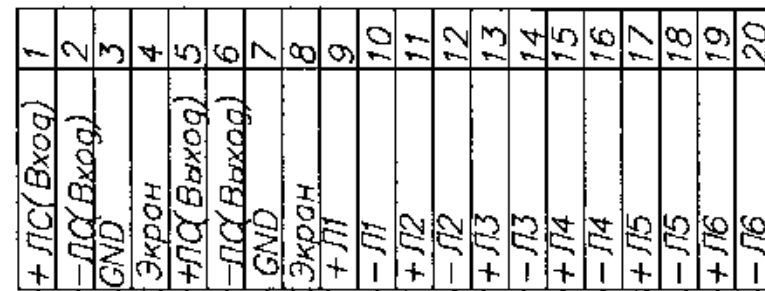 1 +ЛС(Вход)
2 -ЛС(Вход)
3 GND
4 Экран
5 +ЛС(Выход)
6 -ЛС(Выход)
7 GND
8 Экран
9 +Л1
10 -Л1
11 +Л2
12 -Л2
13 +Л3
14 -Л3
15 +Л4
16 -Л4
17 +Л5
18 -Л5
19 +Л6
20 -Л6